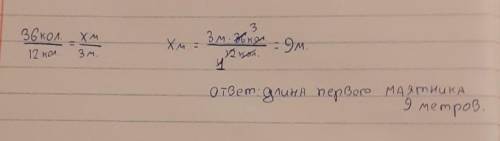 36кол. / 12кол. = xм / 3м. xм = 3м. · 36кол 3 / 12кол. 1 = 9м.
ответ: длина первого маятника
9 метров.